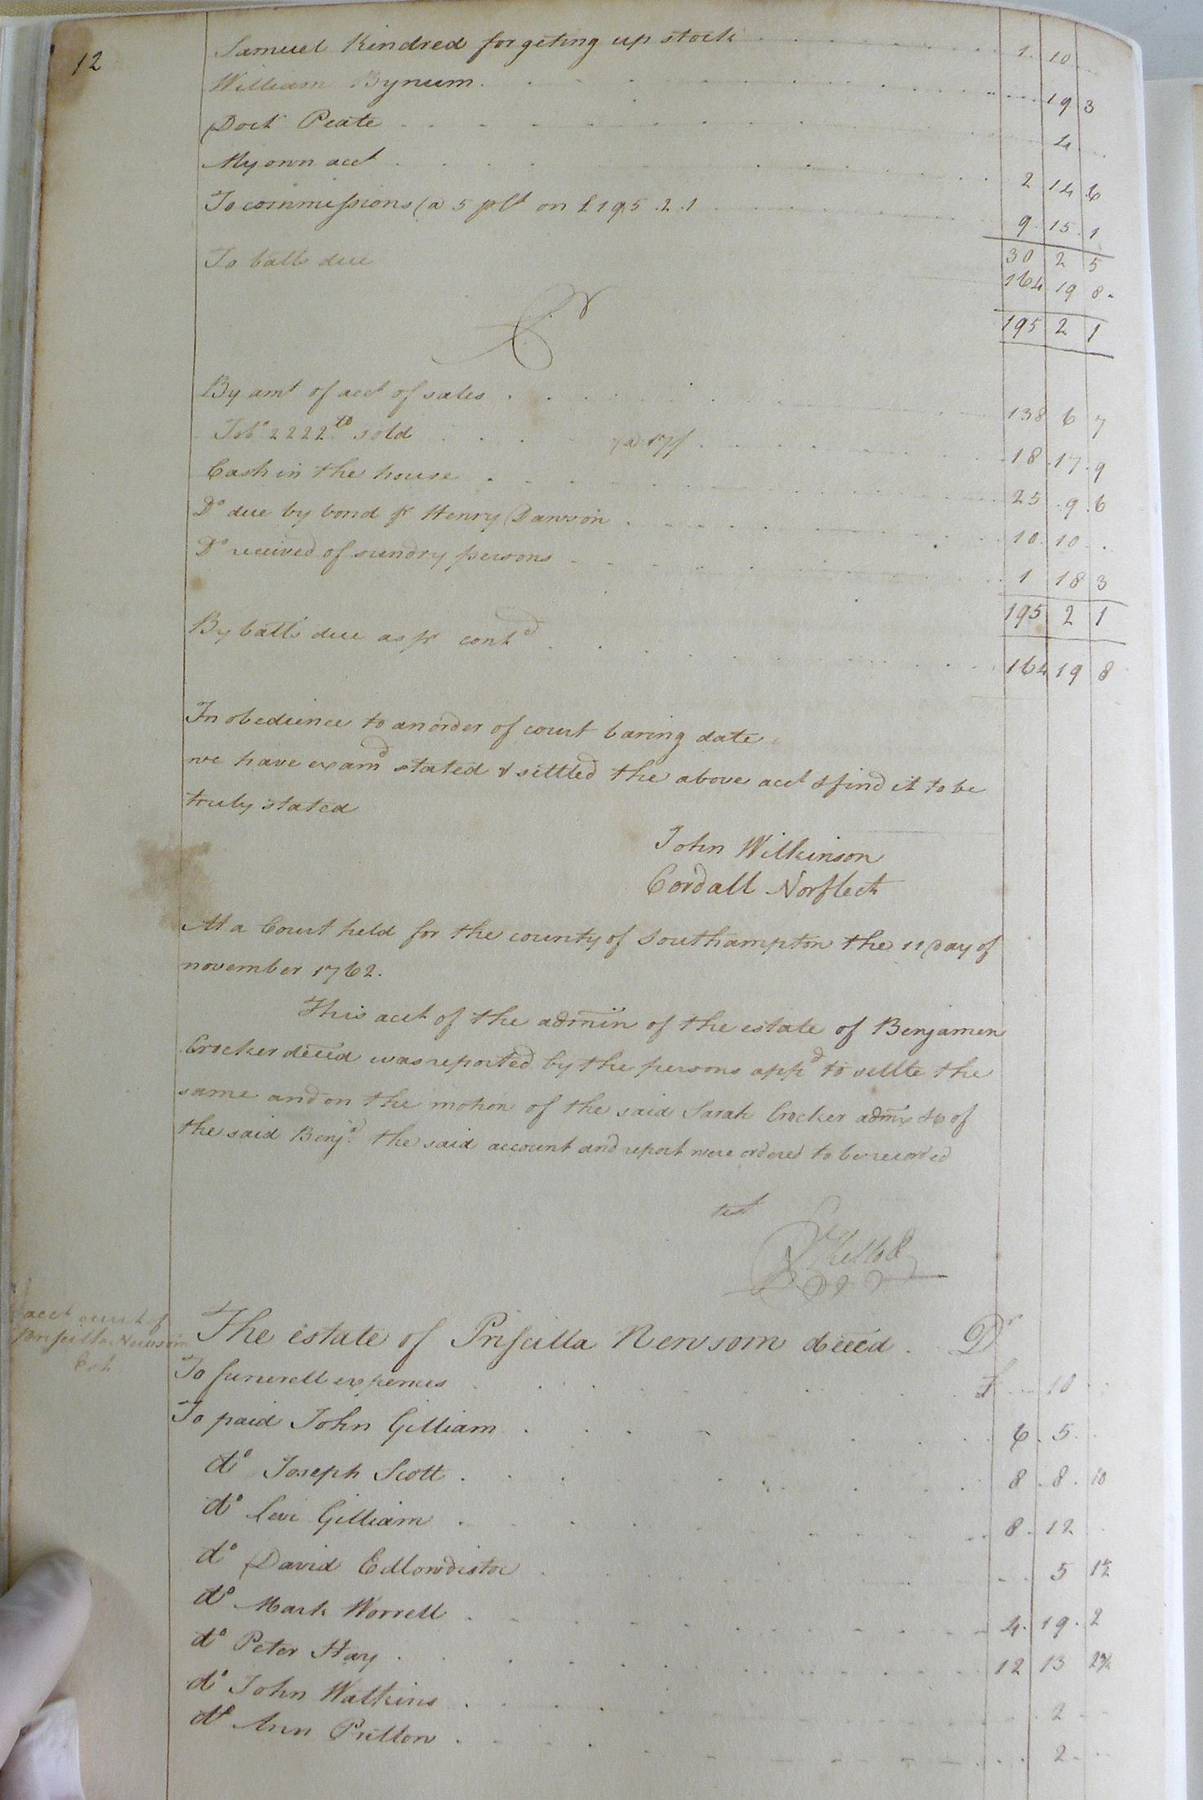 12
Samuel Kindred for geting up stock 1 . 10
William Bynum 19 3
Doct Peate 4
My own acct 2 14 6
To commissions @ 5 pCt on £195.2.1 9 . 15 . 1
30 2 5
To balla due 164 19 8
195 2 1
Cr
By amt of acct of sales 138 6 7
Tobo 2222 lb sold @ 17/ 18 . 17 . 9
Cash in the house 25 . 9 . 6
Do due by bond pr Henry Dawson 10 . 10
Do received of sundry persons 1 18 3
195 2 1
By balla due as pr contd 164 19 8
In obedience to an order of court baring date
we have examd stated & settled the above acct & find it to be
truly stated
John Wilkinson
Cordall Norfleet
At a Court held for the county of Southampton the 11 day of
november 1762.
This acct of the admin of the estate of Benjamen
Crocker deced was reported by the persons appd to settle the
same and on the motion of the said Sarah Crocker admx &c of
the said Benja. the said account and report were ordered to be recorded
test
acct curt of
Priscilla Newsom
The estate of Priscilla Newsom deced Dr
To funerell expences £ 10
To paid John Gilliam 6 . 5
do Joseph Scott 8 . 8 . 10
do Levi Gilliam 8 . 12
do David Edlowdistoe 5
do Mark Worrell 4 . 19 . 2
do Peter Hay 12 13
do John Watkins 2
do Ann Pretlow 2